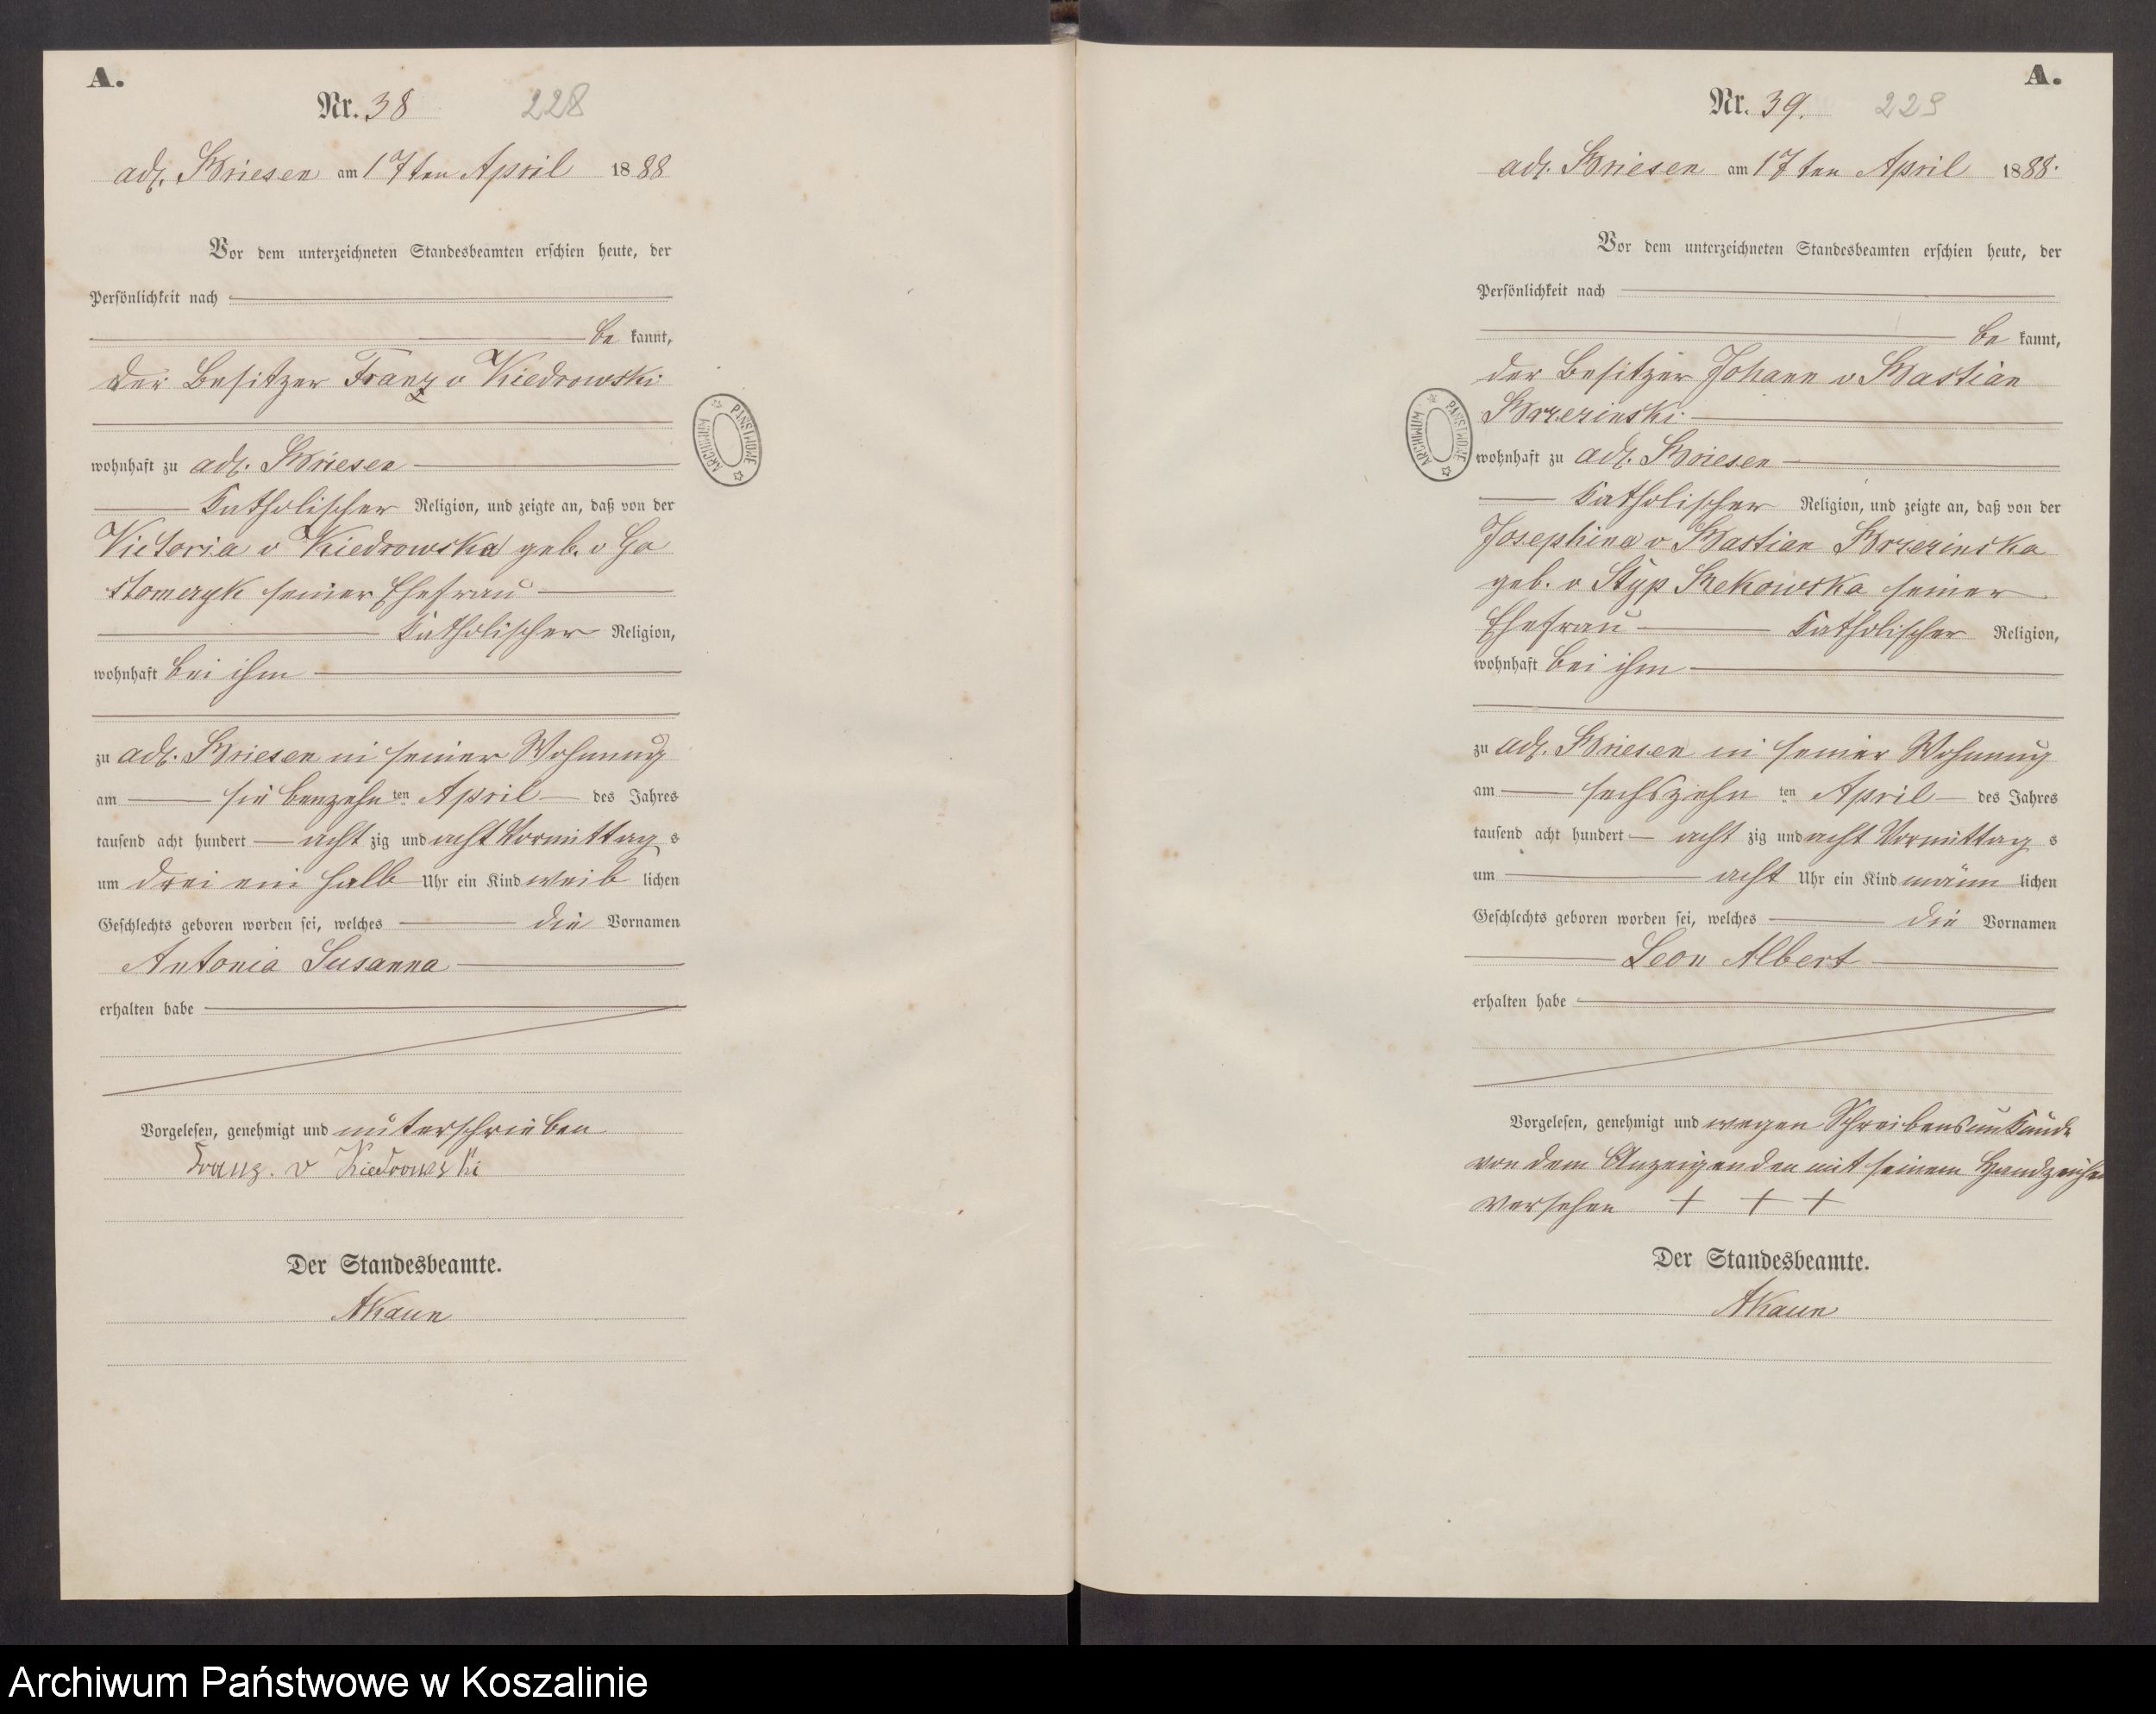 A.
Nr. 38 228
adl. Briesen am 17ten April 1888
Vor dem unterzeichneten Standesbeamten erschien heute, der
Persönlichkeit nach
be kannt,
der Besitzer Franz v Kiedrowski
wohnhaft zu adl. Briesen
katholischer Religion, und zeigte an, daß von der
Victoria v Kiedrowska geb. v Go
stomczyk seiner Ehefrau
katholischer Religion,
wohnhaft bei ihm
zu adl. Briesen in seiner Wohnung
am siebenzehn ten April des Jahres
tausend acht hundert acht zig und acht Vormittag s
um drei ein halb Uhr ein Kind weib lichen
Geschlechts geboren worden sei, welches die Vornamen
Antonia Susanna
erhalten habe
Vorgelesen, genehmigt und unterschrieben
Franz. v Kiedrowski
Der Standesbeamte.
AKaun
ARCHIWUM PAŃSTWOWE
A.
Nr. 39. 229
adl. Briesen am 17ten April 1888.
Vor dem unterzeichneten Standesbeamten erschien heute, der
Persönlichkeit nach
be kannt,
der Besitzer Johann v Bastian
Brzezinski
wohnhaft zu adl. Briesen
katholischer Religion, und zeigte an, daß von der
Josephina v Bastian Brzezinska
geb. v Styp Rekowska seiner
Ehefrau katholischer Religion,
wohnhaft bei ihm
zu adl. Briesen in seiner Wohnung
am sechszehn ten April des Jahres
tausend acht hundert acht zig und acht Vormittag s
um acht Uhr ein Kind männ lichen
Geschlechts geboren worden sei, welches die Vornamen
Leon Albert
erhalten habe
Vorgelesen, genehmigt und wegen Schreibensunkunde
von dem Anzeigenden mit seinem Handzeichen
versehen + + +
Der Standesbeamte.
AKaun
ARCHIWUM PAŃSTWOWE
Archiwum Państwowe w Koszalinie